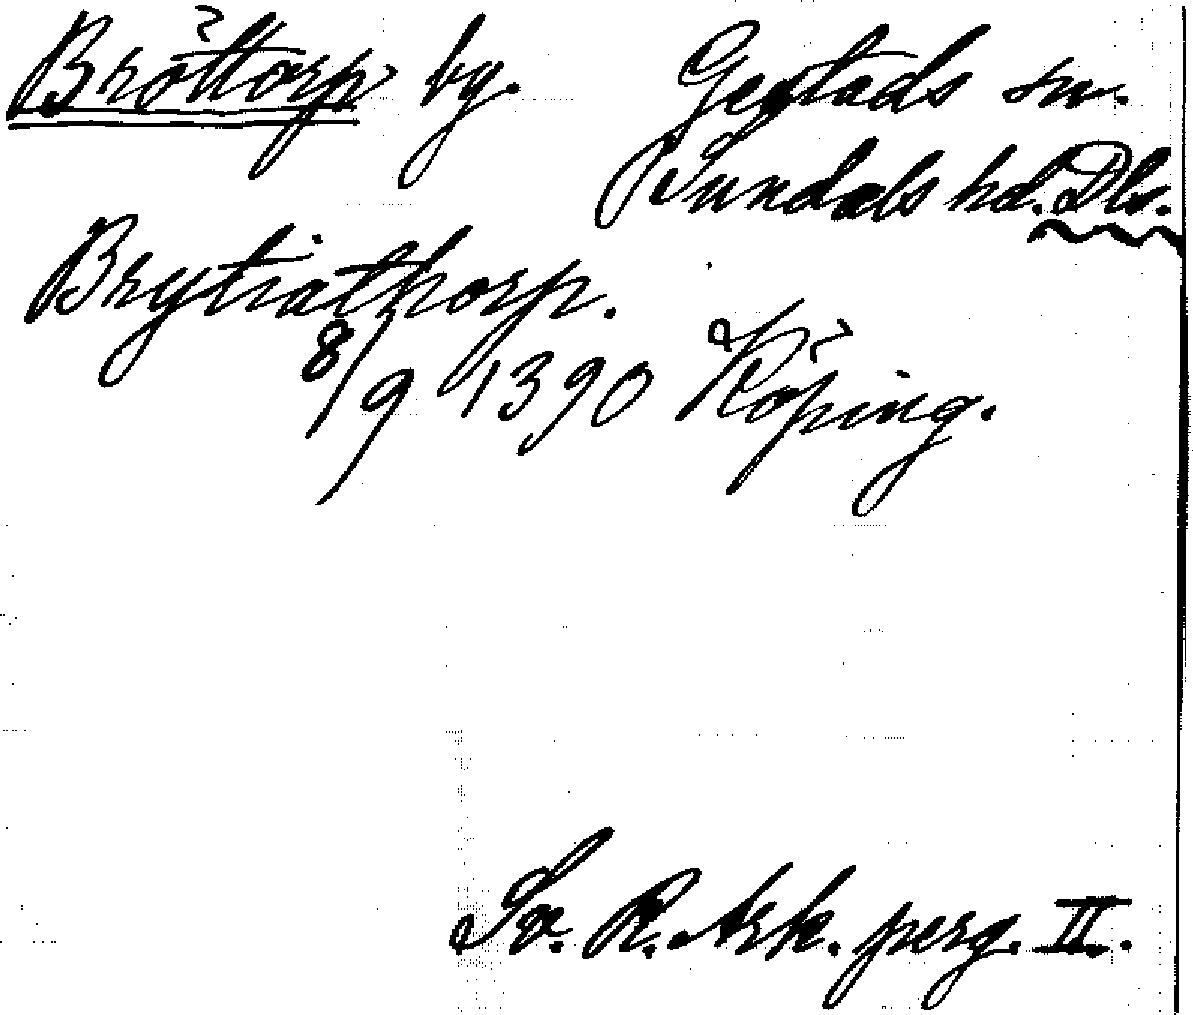 Bröttorp by. Gestads sn.
Sundals hd. Dls.
Brytiathorp.
8/9 1390 Köping.
Sv. R. Ark. perg. II.